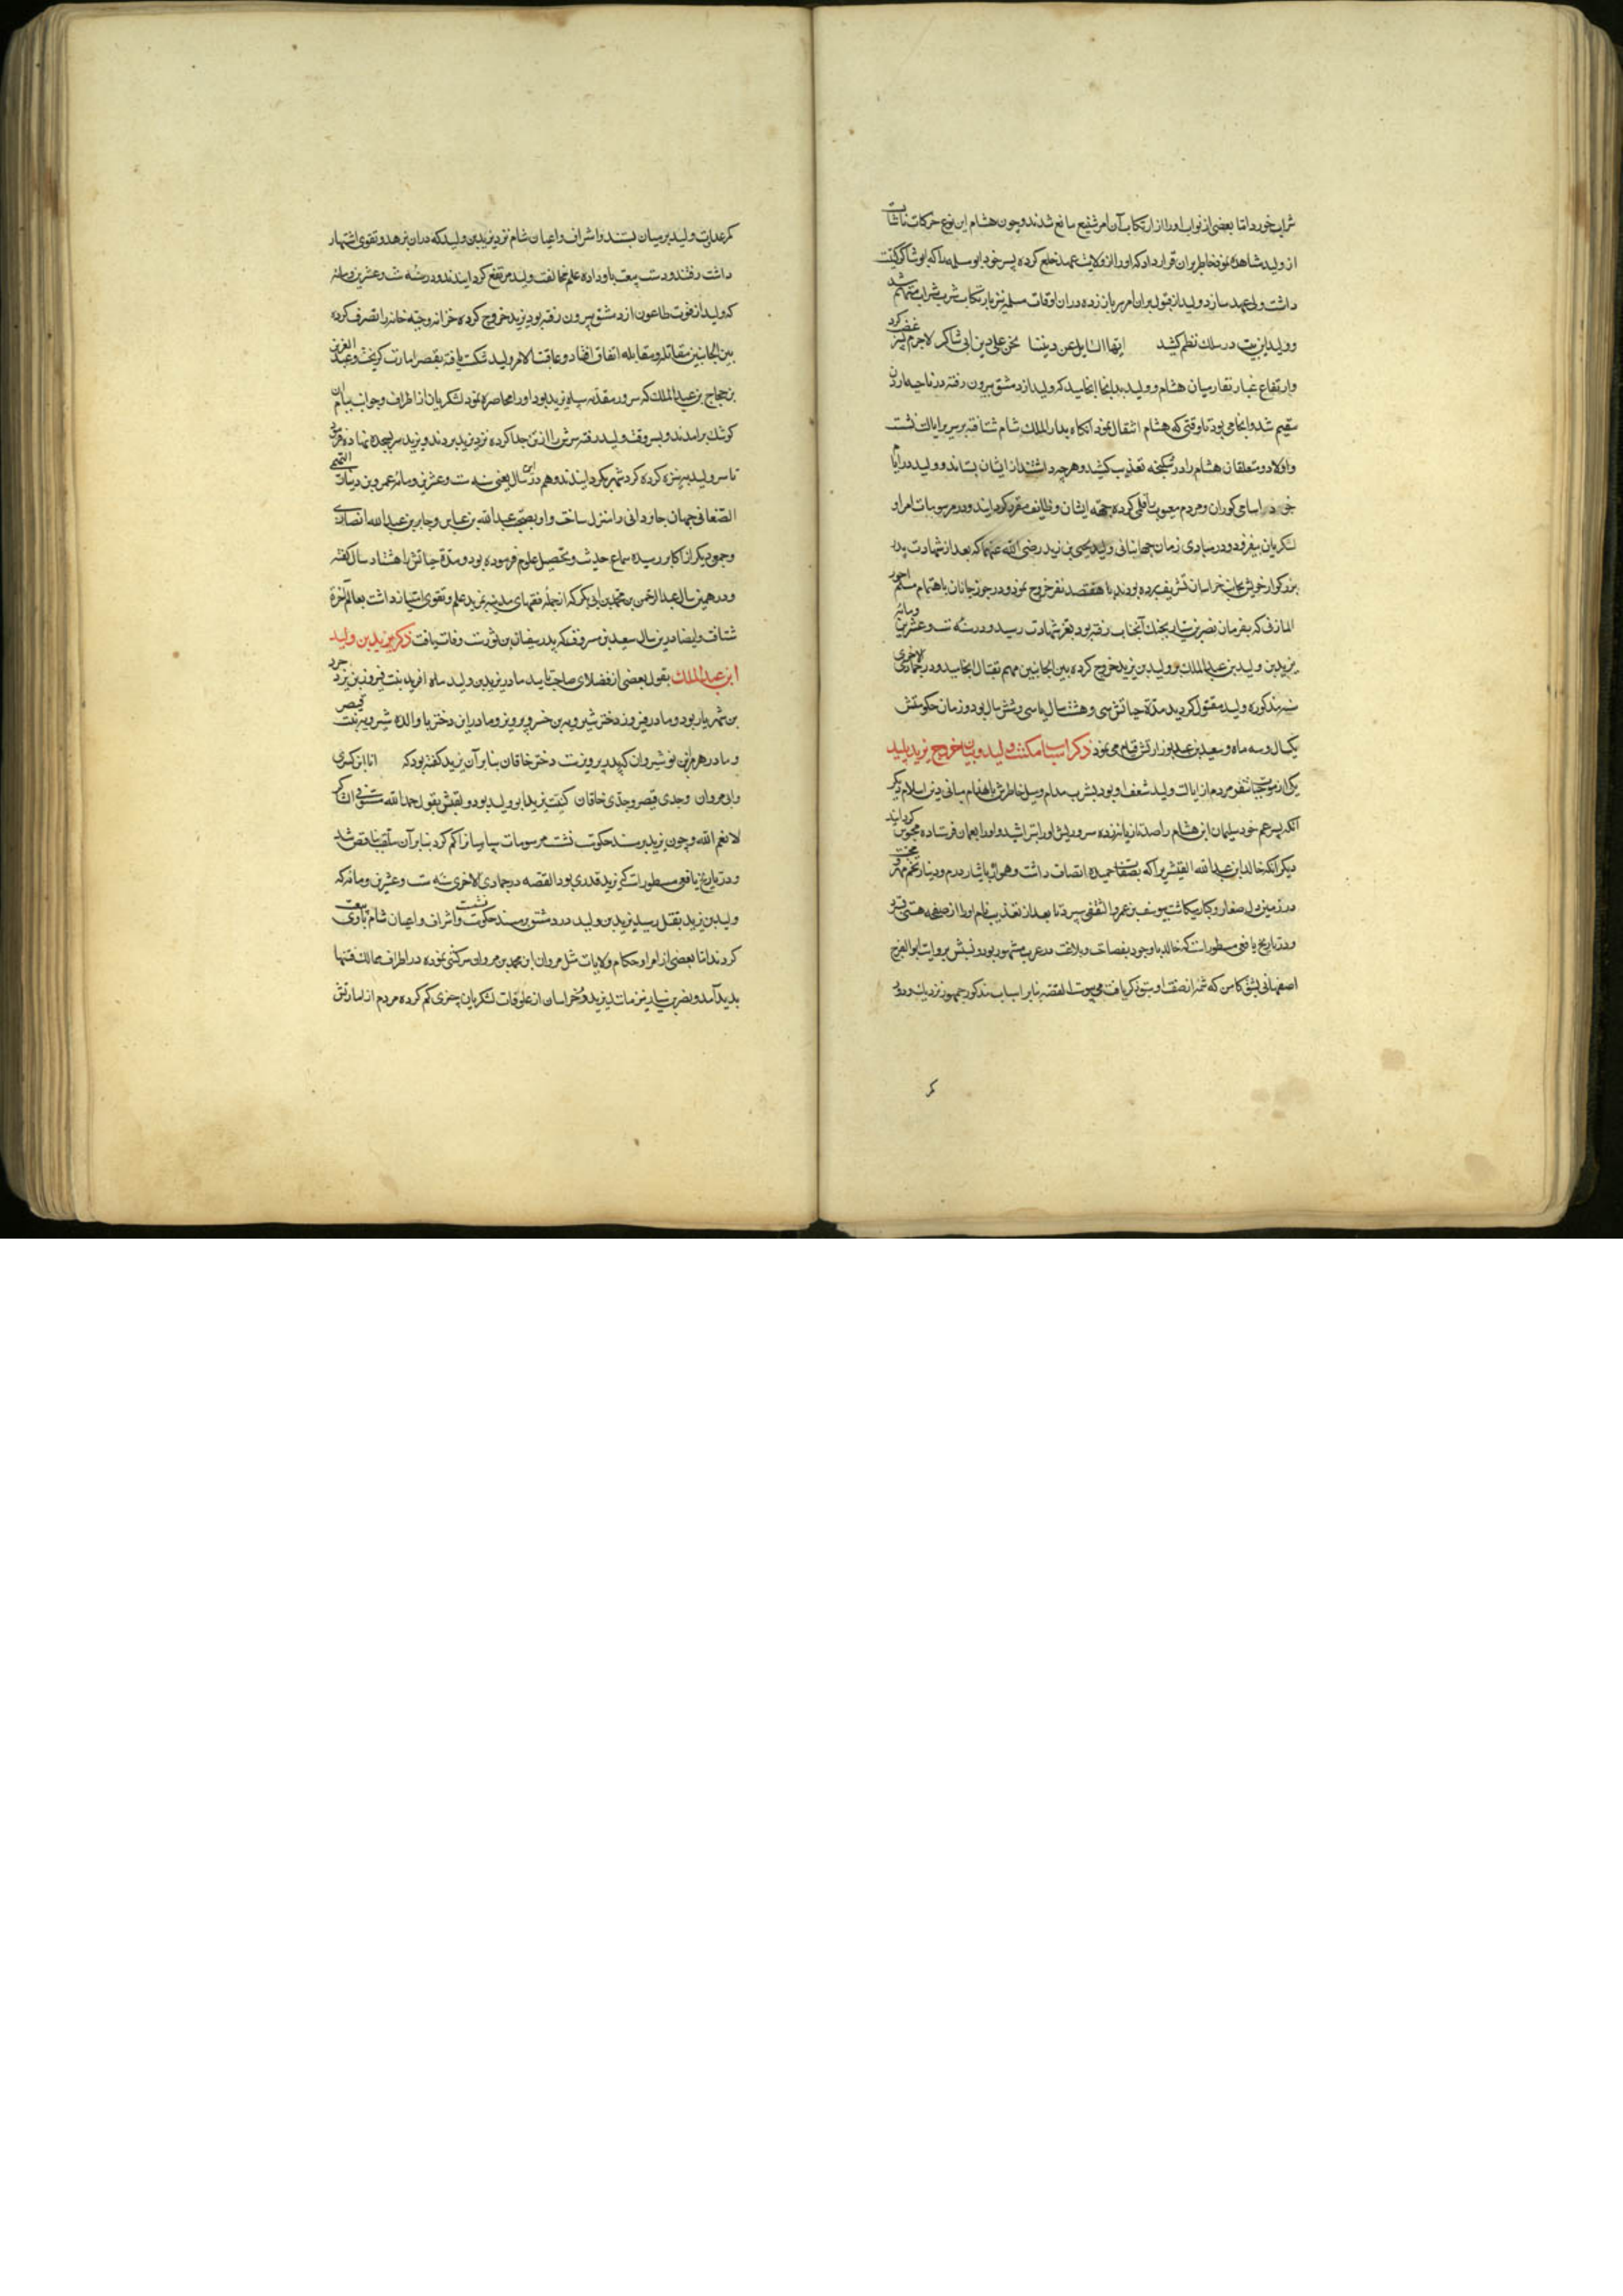 شراب خورد اما بعضی از نواب او را از ارتکاب آن امر شنیع مانع شدند و چون هشام این نوع حرکات ناشایست
از ولید مشاهده نمود خاطر بران قرار داد که او را از ولایت عهد خلع کرده پسر خود ابو سلمه را که ابو شاکر کنیت
داشت ولی عهد سازد و ولید از قبول بران امر سر باز زده دران اوقات مسلمه نیز بارتکاب شرب شراب متهم شد
و ولید این بیت در سلک نظم کشید ایها السایل عن دیننا نحن علی دین ابی شاکر لاجرم غضب کرد
و ارتفاع غبار نقار میان هشام و ولید بدانجا انجامید که ولید از دمشق بیرون رفته در ناحیه اردن
مقیم شد و آنجا می بود تا وقتی که هشام انتقال نمود آنکاه بدار الملک شام شتافته بر سریر ایالت نشست
و اولاد و متعلقان هشام را در شکنجه تعذیب کشید و هر چه داشتند از ایشان بستاند و ولید در ایام
خود اسامی کوران و مردم معیوب را قلمی کرده جهة ایشان وظایف مقرر کردانید و در مرسومات امرا و
لشکریان بیفزود و در مبادی زمان جهانبانی ولید یحیی بن زید رضی الله عنهما که بعد از شهادت پدر
بزرکوار خویش بجانب خراسان تشریف برده بودند با هفتصد نفر خروج نمود و در جوزجانان باهتمام مسلم احور
المازنی که بفرمان نصر بن سیار بجنک آنجناب رفته بود بعز شهادت رسید و در سنه ست و عشرین و مائه
یزید بن ولید بن عبد الملک بر ولید بن یزید خروج کرده بین الجانبین مهم بقتال انجامید و در جمادی الاخری
سنه مذکوره ولید مقتول کردید مدة حیاتش سی و هشت سال یا سی و شش سال بود و زمان حکومتش
یکسال و سه ماه و سعید بن عبد بوزارتش قیام می نمود ذکر اسباب نکبت ولید و بیان خروج یزید پلید
یکی از موجبات تنفر مردم از ایالت ولید شعف او بود بشرب مدام و میل خاطرش بانهدام مبانی دین اسلام دیکر
آنکه پسر عم خود سلیمان ابن هشام را صد تازیانه زده سر و ریش او را بتراشید و او را بعمان فرستاده محبوس کردانید
دیکر آنکه خالد ابن عبد الله القشیری را که بصفات حمیده اتصاف داشت و همواره بایثار درم و دینار تخم مهر و محبت
در زمین دل صغار و کبار میکاشت بیوسف بن عمرو الثقفی سپرد تا بعد از تعذیب نام او را از صحیفه هستی
و در تاریخ یافعی مسطورست که خالد با وجود بفصاحت و بلاغت در عرب مشهور بود و نسبش بروایت ابو الفرج
اصفهانی بشق کاهن که شمه از صفت او سبق ذکر یافت می پیوست القصه بنابر اسباب مذکور جمهور نزدیک و دور
کمر
کمر عداوت ولید بر میان بستند و اشراف و اعیان شام نزد یزید بن ولید که دران بزهد و تقوی اشتهار
داشت رفتند و دست بیعت باو داده علم مخالفت ولید مرتفع کردانیدند و در سنه ست و عشرین و مائه
که ولید از خوف طاعون از دمشق بیرون رفته بود یزید خروج کرده خزانه و جبه خانه را تصرف کرده
بین الجانبین مقاتله و مقابله اتفاق افتاد و عاقبت الامر ولید شکست یافته بقصر امارت کریخت و عبد العزیز
بن حجاج بن عبد الملک که سرور مقدمه سپاه یزید بود او را محاصره نمود لشکریان از اطراف و جوانب ببام آن
کوشک برآمدند و بسر وقت ولید رفته سرش را از تن جدا کرده نزد یزید بردند و یزید سر بسجده نهاده فرمود
تا سر ولید بر نیزه کرده کرد شهر بکردانیدند و هم در این سال یعنی سنه ست و عشرین و مائه عمرو بن دینار التمیمی
الصنعانی جهان جاودانی را منزل ساخت و او بصحبت عبد الله بن عباس و جابر بن عبد الله انصاری
و جمعی دیکر از اکابر رسیده سماع حدیث و تحصیل علوم فرموده بود و مدة حیاتش را هشتاد سال کفته
و در همین سال عبد الرحمن بن محمد بن ابی بکر که از جمله فقهای مدینه بمزید علم و تقوی امتیاز داشت بعالم آخرة
شتافت و ایضا درین سال سعید بن مسروق که پدر سفیان بن ثورست وفات یافت ذکر یزید بن ولید
ابن عبد الملک بقول بعضی از فضلای صاحب تایید مادر یزید بن ولید ماه آفرید بنت فیروز بن یزدجرد
بن شهریار بود و مادر فیروز دختر شیرویه بن خسرو پرویز و مادر این دختر یا والده شیرویه بنت قیصر
و مادر هرمز بن نوشیروان که پدر پرویزست دختر خاقان بنا بر آن یزید کفته بود که انا ابن کسری
وابی مروان وجدی قیصر وجدی خاقان کنیت یزید ابو ولید بود و لقبش بقول حمد الله مستوفی الشاکر
لانعم الله و چون یزید بر مسند حکومت نشست مرسومات سپاهیانرا کم کرد بنا بر آن ملقب بناقص شد
و در تاریخ یافعی مسطورست که یزید قدری بود القصه در جمادی الاخری سنه ست و عشرین و مائه که
ولید بن یزید بقتل رسید یزید بن ولید در دمشق بر مسند حکومت نشست و اشراف و اعیان شام با وی بیعت
کردند اما بعضی از امرا و حکام ولایات مثل مروان ابن محمد بن مروان سرکشی نموده در اطراف ممالک فتنها
پدید آمد و نصر بن سیار نیز مانند یزید در خراسان از علوفات لشکریان چیزی کم کرده مردم از امارتش